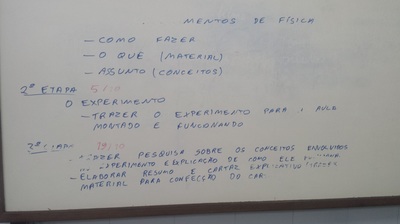 MENTOS DE FÍSICA
- COMO FAZER
- O QUE (MATERIAL)
- ASSUNTO (CONCEITOS)
2ª ETAPA 5/10
O EXPERIMENTO
- TRAZER O EXPERIMENTO PARA AULA
MONTADO E FUNCIONANDO
19/10
PESQUISA SOBRE OS CONCEITOS ENVOLVIDOS
EXPERIMENTO E EXPLICAÇÃO DE COMO ELE
- ELABORAR RESUMO E CARTAZ EXPLICATIVO
MATERIAL PARA CONFECÇÃO DO